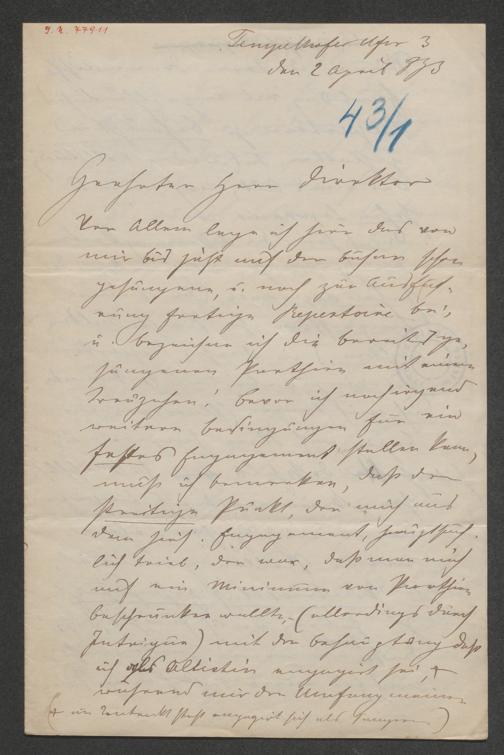 I. N. 77911
Tempelhofer Ufer 3
den 2 April 873
43/1
Geehrter Herr Direktor
Vor Allem lege ich hier das von
mir bis jetzt auf der Bühne schon
gesungene, u. noch zur Ausfüh-
rung fertige Repertoire bei,
u. bezeichne ich die bereits ge-
sungenen Parthien mit einem
Kreuzchen! Bevor ich noch irgend
weitere Bedingungen für ein
festes Engagement stellen kann,
muß ich bemerken, daß der
streitige Punkt, der mich aus
dem Engagement hauptsäch-
lich trieb, der war, daß man mich
auf ein Minimum von Parthien
beschränken wollte, (allerdings durch
Intrigue) mit der Behauptung daß
ich als Altistin engagirt sei, +
während mir der Umfang meiner
(+ im Contrakt steht engagirt sich als Sängerin)